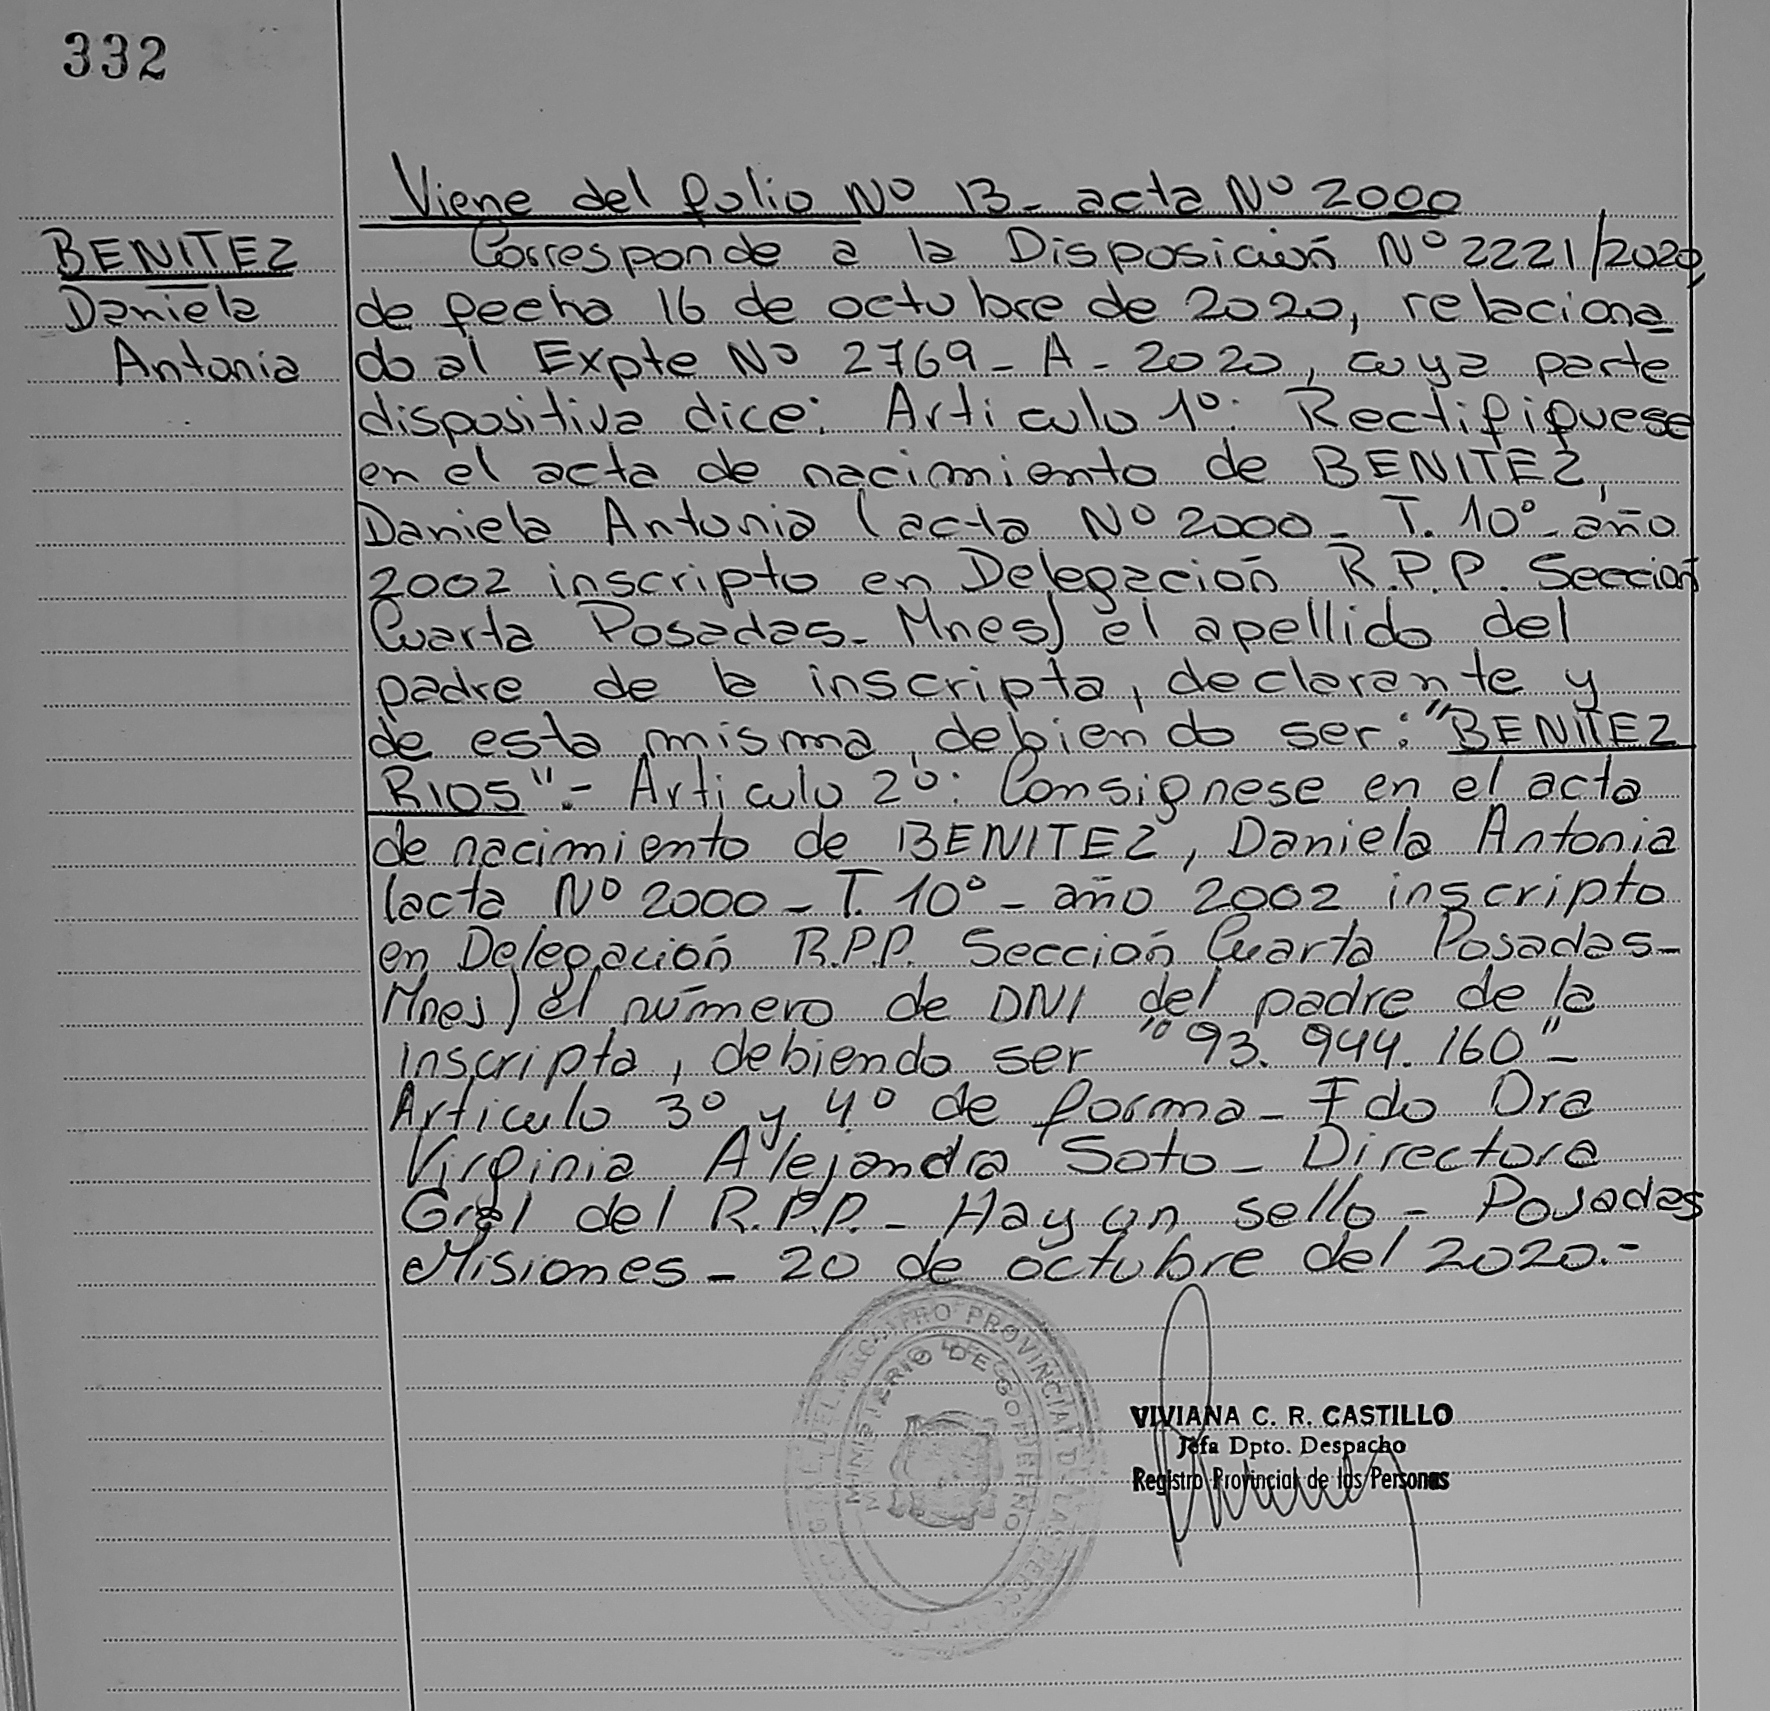 332
Viene del folio Nº 13- acta Nº 2000
BENITEZ
Daniela
Antonia
Corresponde a la Disposición Nº 2221/2020,
de fecha 16 de octubre de 2020, relaciona
do al Expte Nº 2769-A-2020, cuya parte
dispositiva dice: Articulo 1º: Rectifiquese
en el acta de nacimiento de BENITEZ,
Daniela Antonia (acta Nº 2000- T. 10º- año
2002 inscripto en Delegación R.P.P. Sección
Cuarta Posadas- Mnes) el apellido del
padre de la inscripta, declarante y
de esta misma, debiendo ser: "BENITEZ
RIOS".- Articulo 2º: Consignese en el acta
de nacimiento de BENITEZ, Daniela Antonia
(acta Nº 2000- T. 10º- año 2002 inscripto
en Delegación R.P.P. Sección Cuarta Posadas-
Mnes) el número de DNI del padre de la
inscripta, debiendo ser "93.944.160"-
Articulo 3º y 4º de forma- Fdo Dra
Virginia Alejandra Soto- Directora
Gral del R.P.P.- Hay un sello,- Posadas
Misiones- 20 de octubre del 2020.-
REGISTRO PROVINCIAL DE LAS PERSONAS
MINISTERIO DE GOBIERNO
VIVIANA C. R. CASTILLO
Jefa Dpto. Despacho
Registro Provincial de las Personas